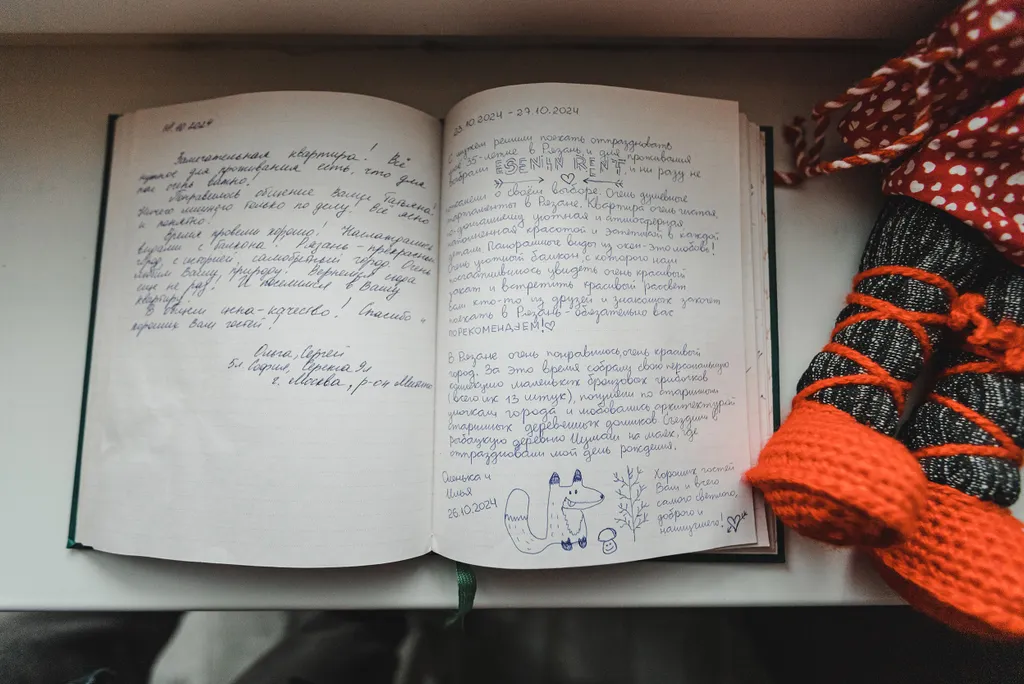 11.10.2024
Замечательная квартира! Всё
нужное для проживания есть, что для
нас очень важно.
Понравилось общение Вашей Татьяны!
Ничего лишнего только по делу! Всё ясно
и понятно.
Время провели хорошо! Наслаждались
видами с балкона! Рязань - прекрасный
город, с историей, самобытный город. Очень
любим Вашу природу! Вернемся сюда
еще не раз! И поселимся в Вашу
квартиру!
В общем цена-качество! Спасибо и
хороших Вам гостей!
Ольга, Сергей
5л София, Серёжа 9л
г. Москва, р-он
23.10.2024 - 27.10.2024
С мужем решили поехать отпраздновать
моё 35-летие в Рязань и для проживания
выбрали ESENIN RENT, и ни разу не
пожалели о своём выборе. Очень душевные
апартаменты в Рязане. Квартира очень чистая,
по-домашнему уютная и атмосферная,
наполненная красотой и эстетикой в каждой
детали. Панорамные виды из окон - это любовь!
Очень уютный балкон, с которого нам
посчастливилось увидеть очень красивый
закат и встретить красивый рассвет.
Если кто-то из друзей и знакомых захочет
поехать в Рязань - обязательно вас
ПОРЕКОМЕНДУЕМ!
В Рязане очень понравилось, очень красивый
город. За это время собрали свою персональную
коллекцию маленьких бронзовых грибочков
(всего их 13 штук), погуляли по старинным
улочкам города и любовались архитектурой
старинных деревянных домиков. Съездили в
рыбацкую деревню на маяк, где
отпраздновали мой день рождения.
Оленька и
Илья
26.10.2024
Хороших гостей
Вам и всего
самого светлого,
доброго и
наилучшего!